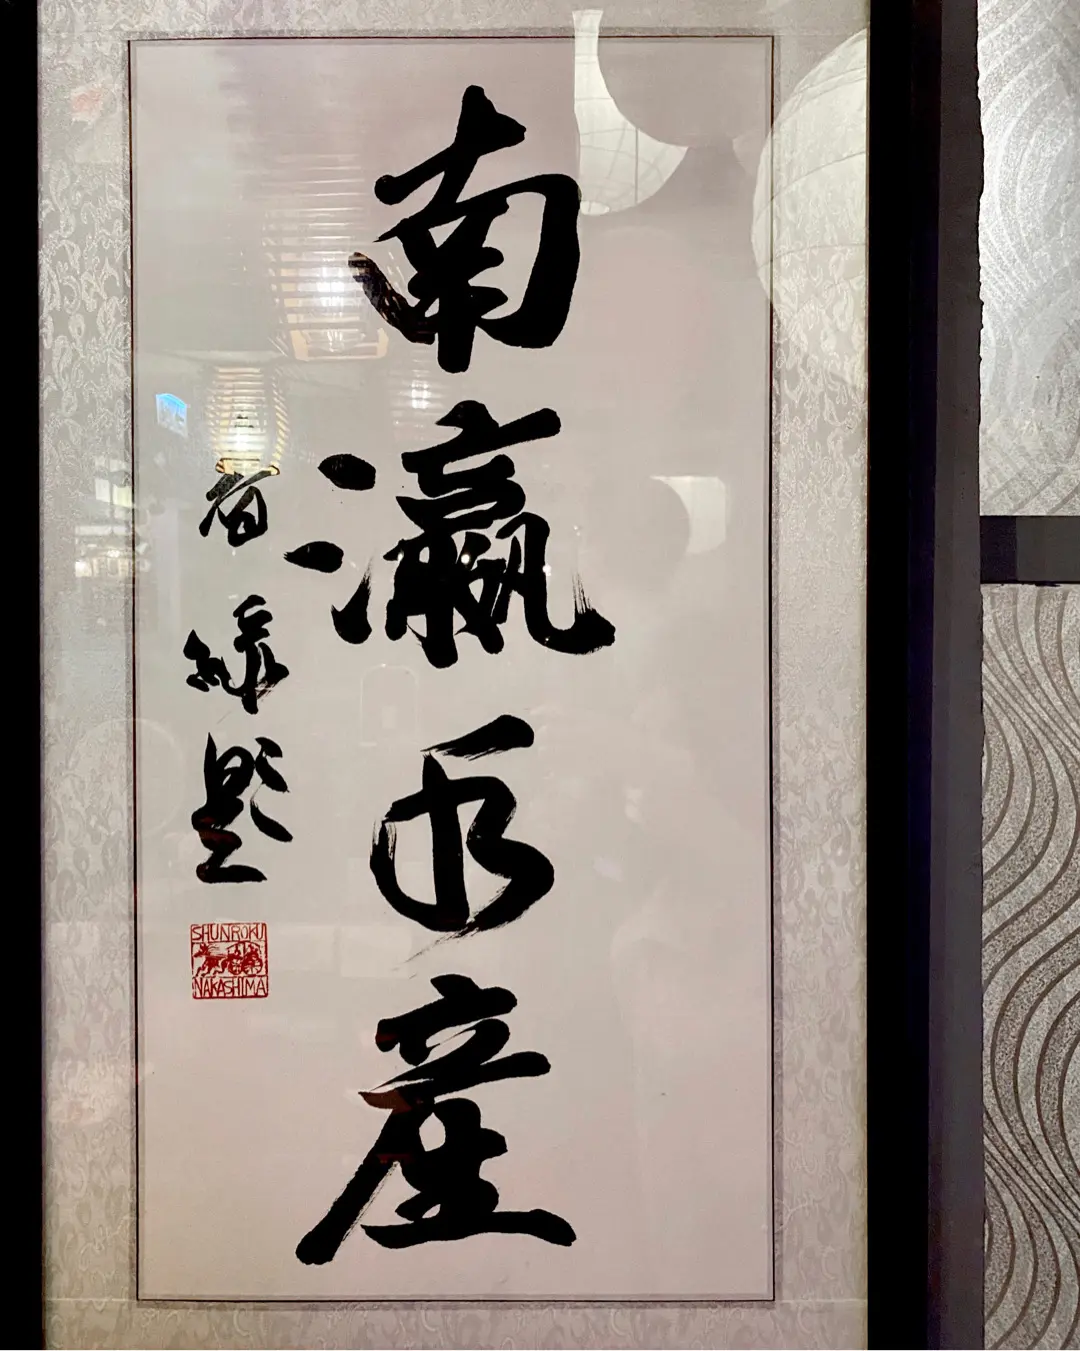 南瀛 産
春緑題
SHUNROKU
NAKASHIMA